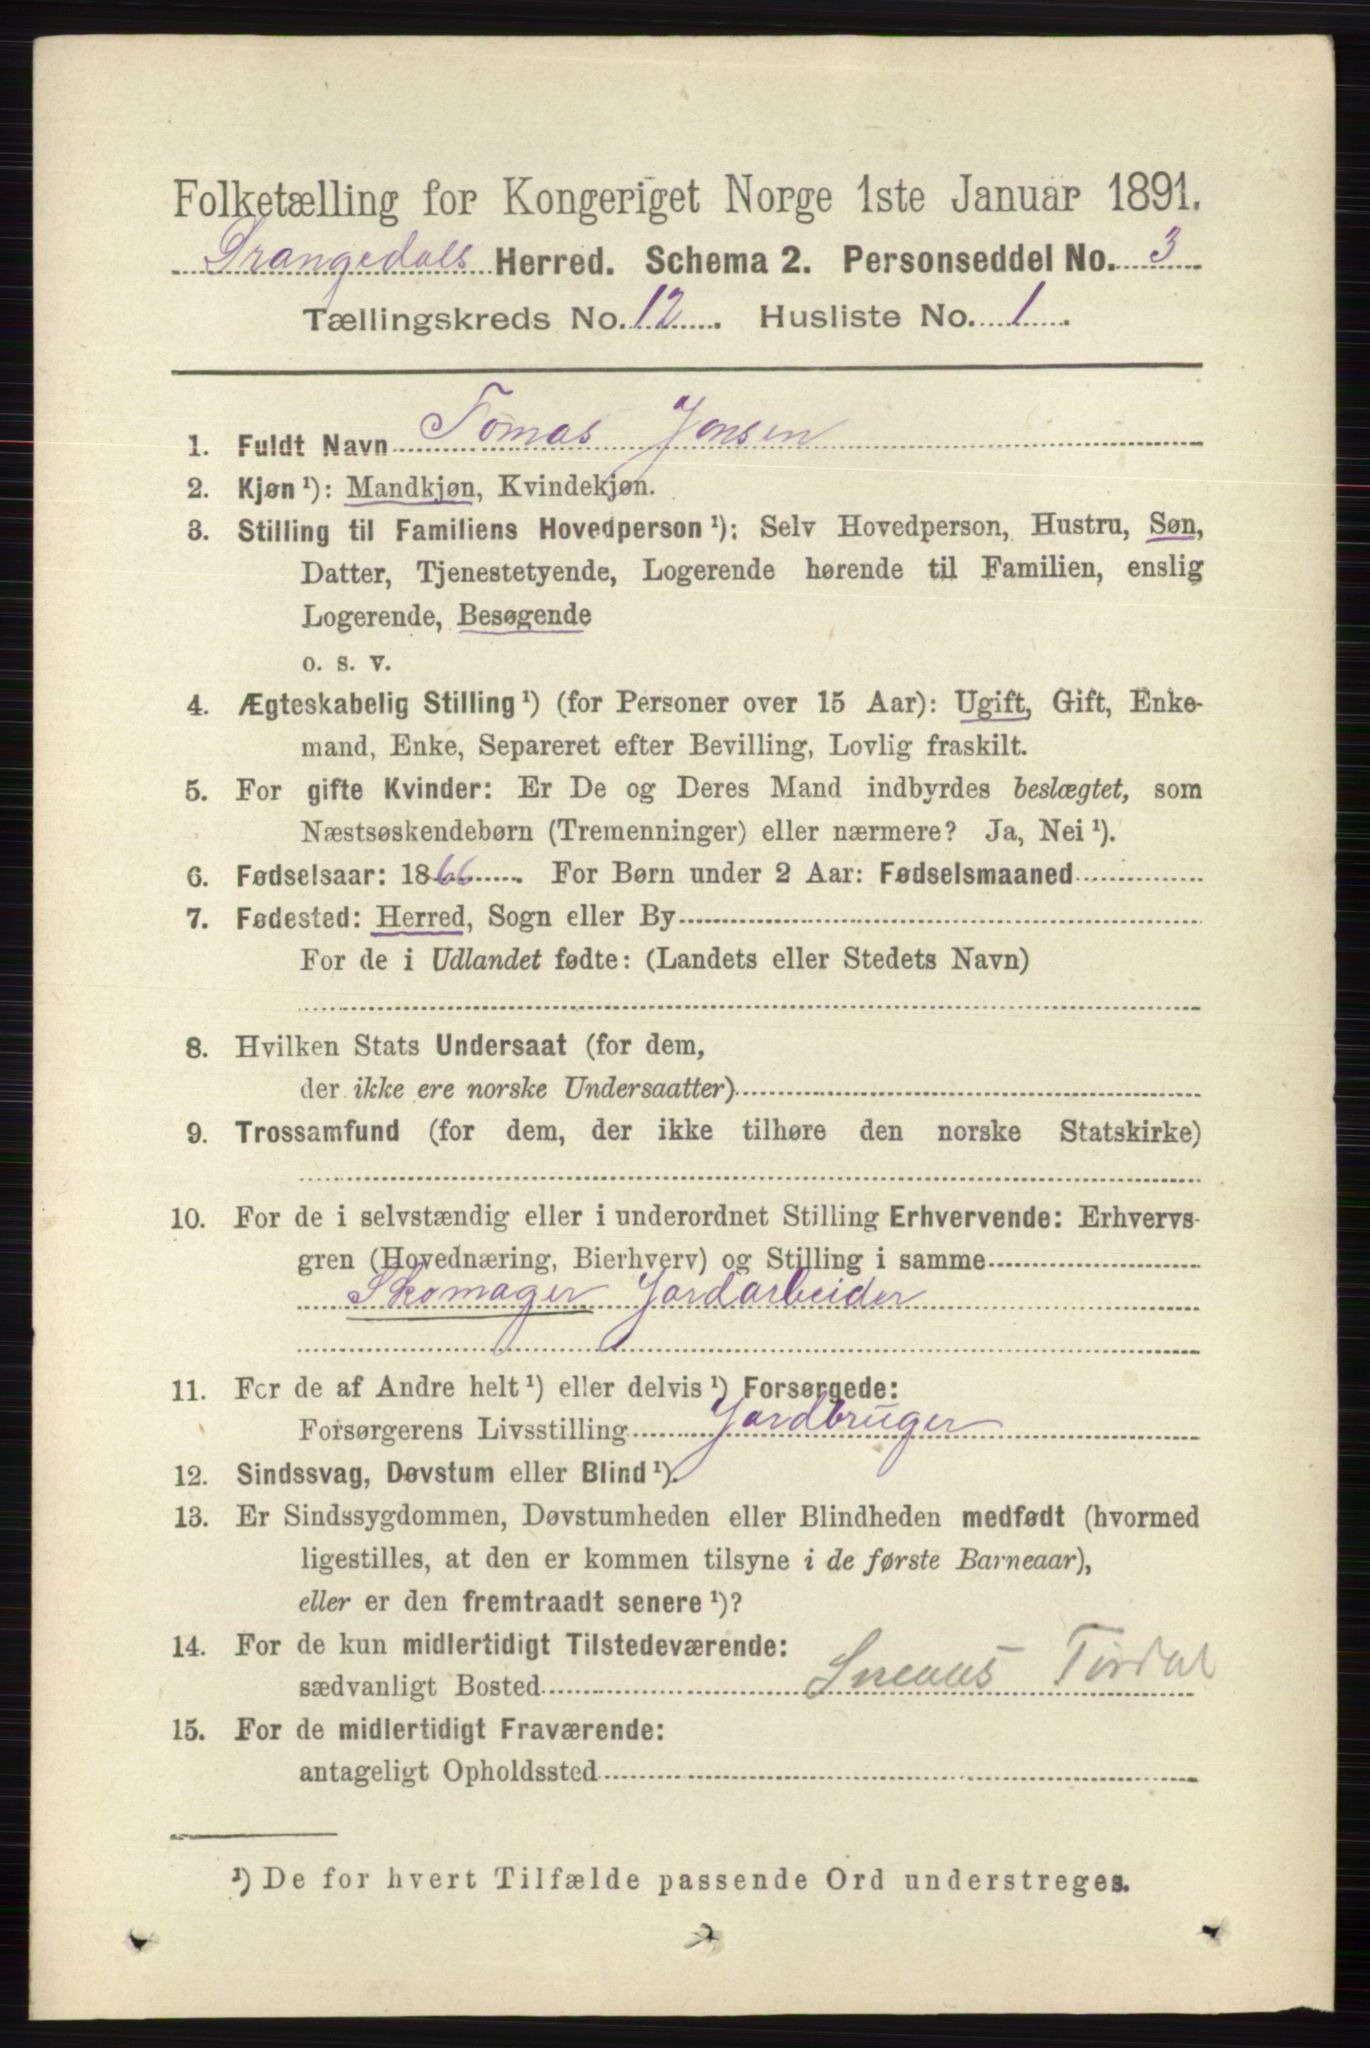 Folketælling for Kongeriget Norge 1ste Januar 1891.
Drangedals Herred. Schema 2. Personseddel No. 3
Tællingskreds No. 12. Husliste No. 1.
1. Fuldt Navn Tomas Jonsen
2. Kjøn ¹): Mandkjøn, Kvindekjøn.
3. Stilling til Familiens Hovedperson ¹): Selv Hovedperson, Hustru, Søn,
Datter, Tjenestetyende, Logerende hørende til Familien, enslig
Logerende, Besøgende
o. s. v.
4. Ægteskabelig Stilling ¹) (for Personer over 15 Aar): Ugift, Gift, Enke-
mand, Enke, Separeret efter Bevilling, Lovlig fraskilt.
5. For gifte Kvinder: Er De og Deres Mand indbyrdes beslægtet, som
Næstsøskendebørn (Tremenninger) eller nærmere? Ja, Nei ¹).
6. Fødselsaar: 1866. For Børn under 2 Aar: Fødselsmaaned
7. Fødested: Herred, Sogn eller By
For de i Udlandet fødte: (Landets eller Stedets Navn)
8. Hvilken Stats Undersaat (for dem,
der ikke ere norske Undersaatter)
9. Trossamfund (for dem, der ikke tilhøre den norske Statskirke)
10. For de i selvstændig eller i underordnet Stilling Erhvervende: Erhvervs-
gren (Hovednæring, Bierhverv) og Stilling i samme
Skomager Jordarbeider
11. For de af Andre helt ¹) eller delvis ¹) Forsørgede:
Forsørgerens Livsstilling Jordbruger
12. Sindssvag, Døvstum eller Blind ¹).
13. Er Sindssygdommen, Døvstumheden eller Blindheden medfødt (hvormed
ligestilles, at den er kommen tilsyne i de første Barneaar),
eller er den fremtraadt senere ¹)?
14. For de kun midlertidigt Tilstedeværende:
sædvanligt Bosted Tørdal
15. For de midlertidigt Fraværende:
antageligt Opholdssted
¹) De for hvert Tilfælde passende Ord understreges.